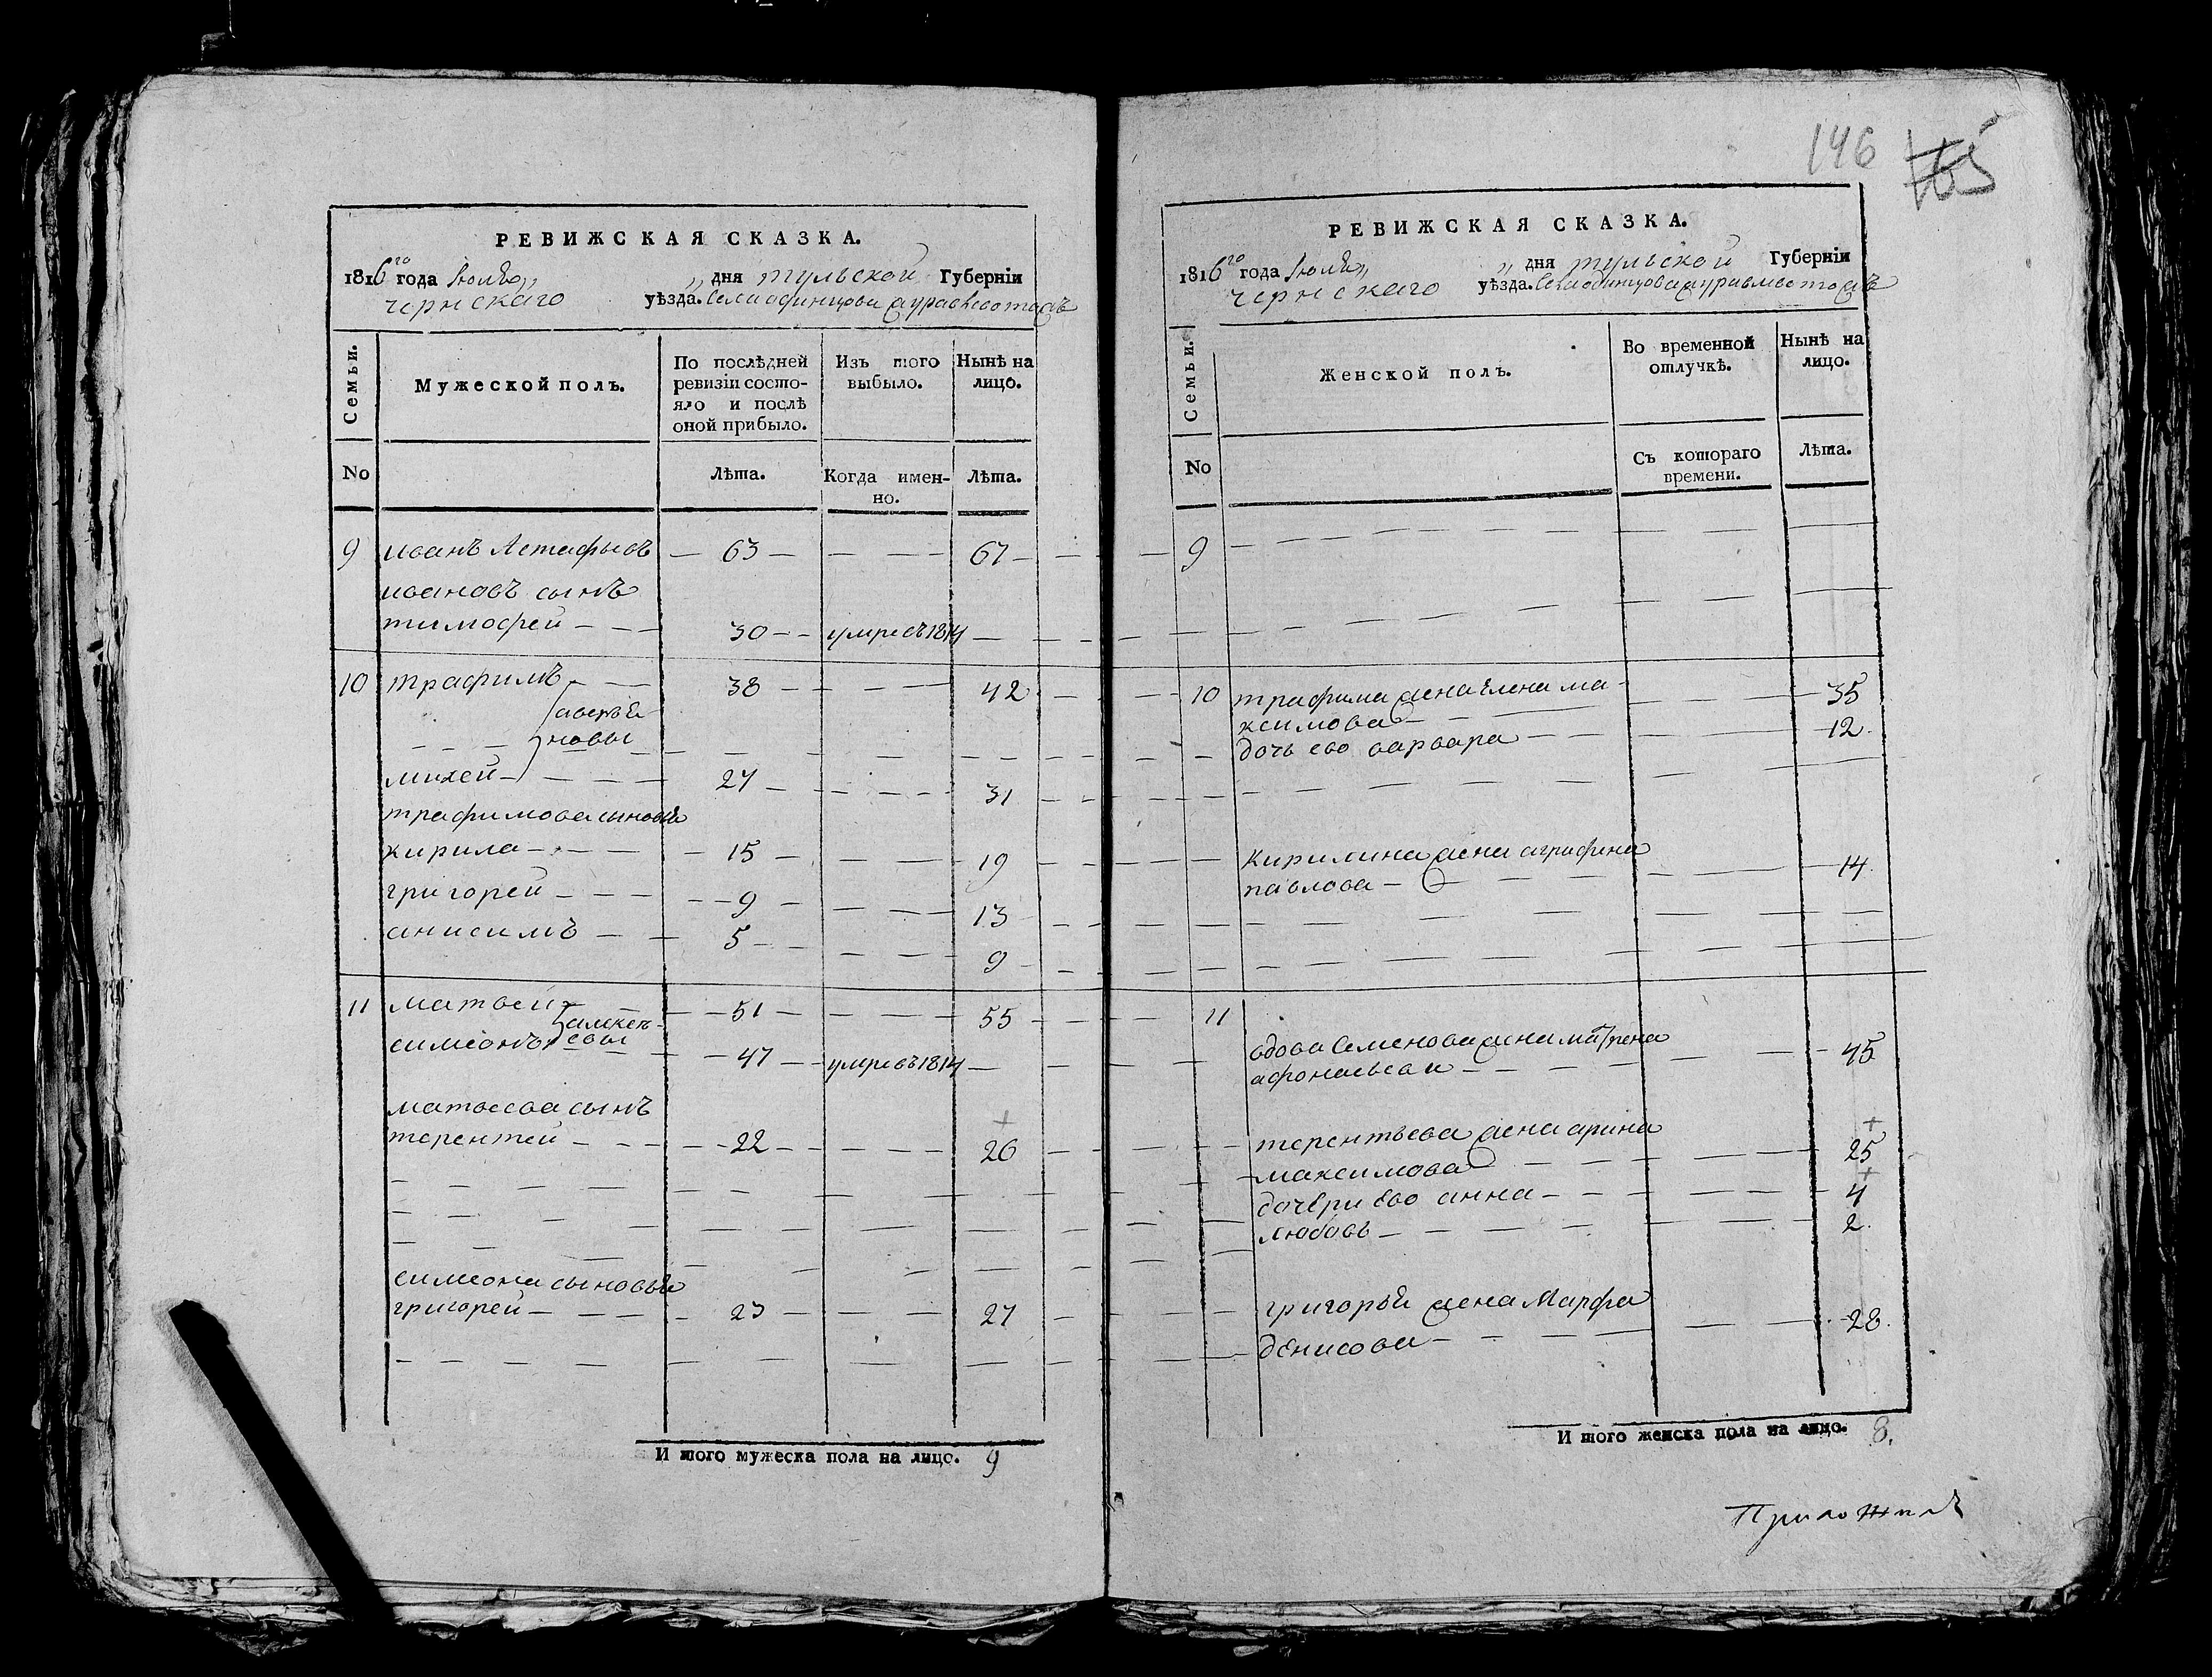 146 165
РЕВИЖСКАЯ СКАЗКА.
1816го года Июля „ „ дня тульской Губерніи
чернскаго уѣзда. Села одинцова
Семьи.
Мужеской полъ.
По послѣдней ревизіи состо-
яло и послѣ
оной прибыло.
Изъ того
выбыло.
Нынѣ на
лицо.
No
Лѣта.
Когда имен-
но.
Лѣта.
9 иванъ Астафьевъ 63 67
ивановъ сынъ
тимофей 30 умре въ 1814
10 трафимъ 38 42
аверье
новы
михей 27 31
трафимова сыновья
кирила 15 19
григорей 9 13
анисимъ 5 9
11 матвей 51 55
алексе-
евы
симеонъ 47 умре въ 1814
матвеева сынъ
терентей 22 26
симеона сыновья
григорей 23 27
И того мужеска пола на лицо. 9
РЕВИЖСКАЯ СКАЗКА.
1816го года Июля „ „ дня тульской Губерніи
чернскаго уѣзда. Села одинцова
Семьи.
Женской полъ.
Во временной
отлучкѣ.
Нынѣ на
лицо.
No
Съ котораго
времени.
Лѣта.
9
10 трафима жена елена ма-
ксимова 35
дочь ево варвара 12
кирилина жена аграфена
павлова 14
11
вдова Семенова жена матрена
афонасьева 45
терентьева жена арина
максимова 25
дочери ево анна 4
любовь 2
григорья жена Марфа
денисова 28
И того женска пола на лицо. 8.
Приложилъ